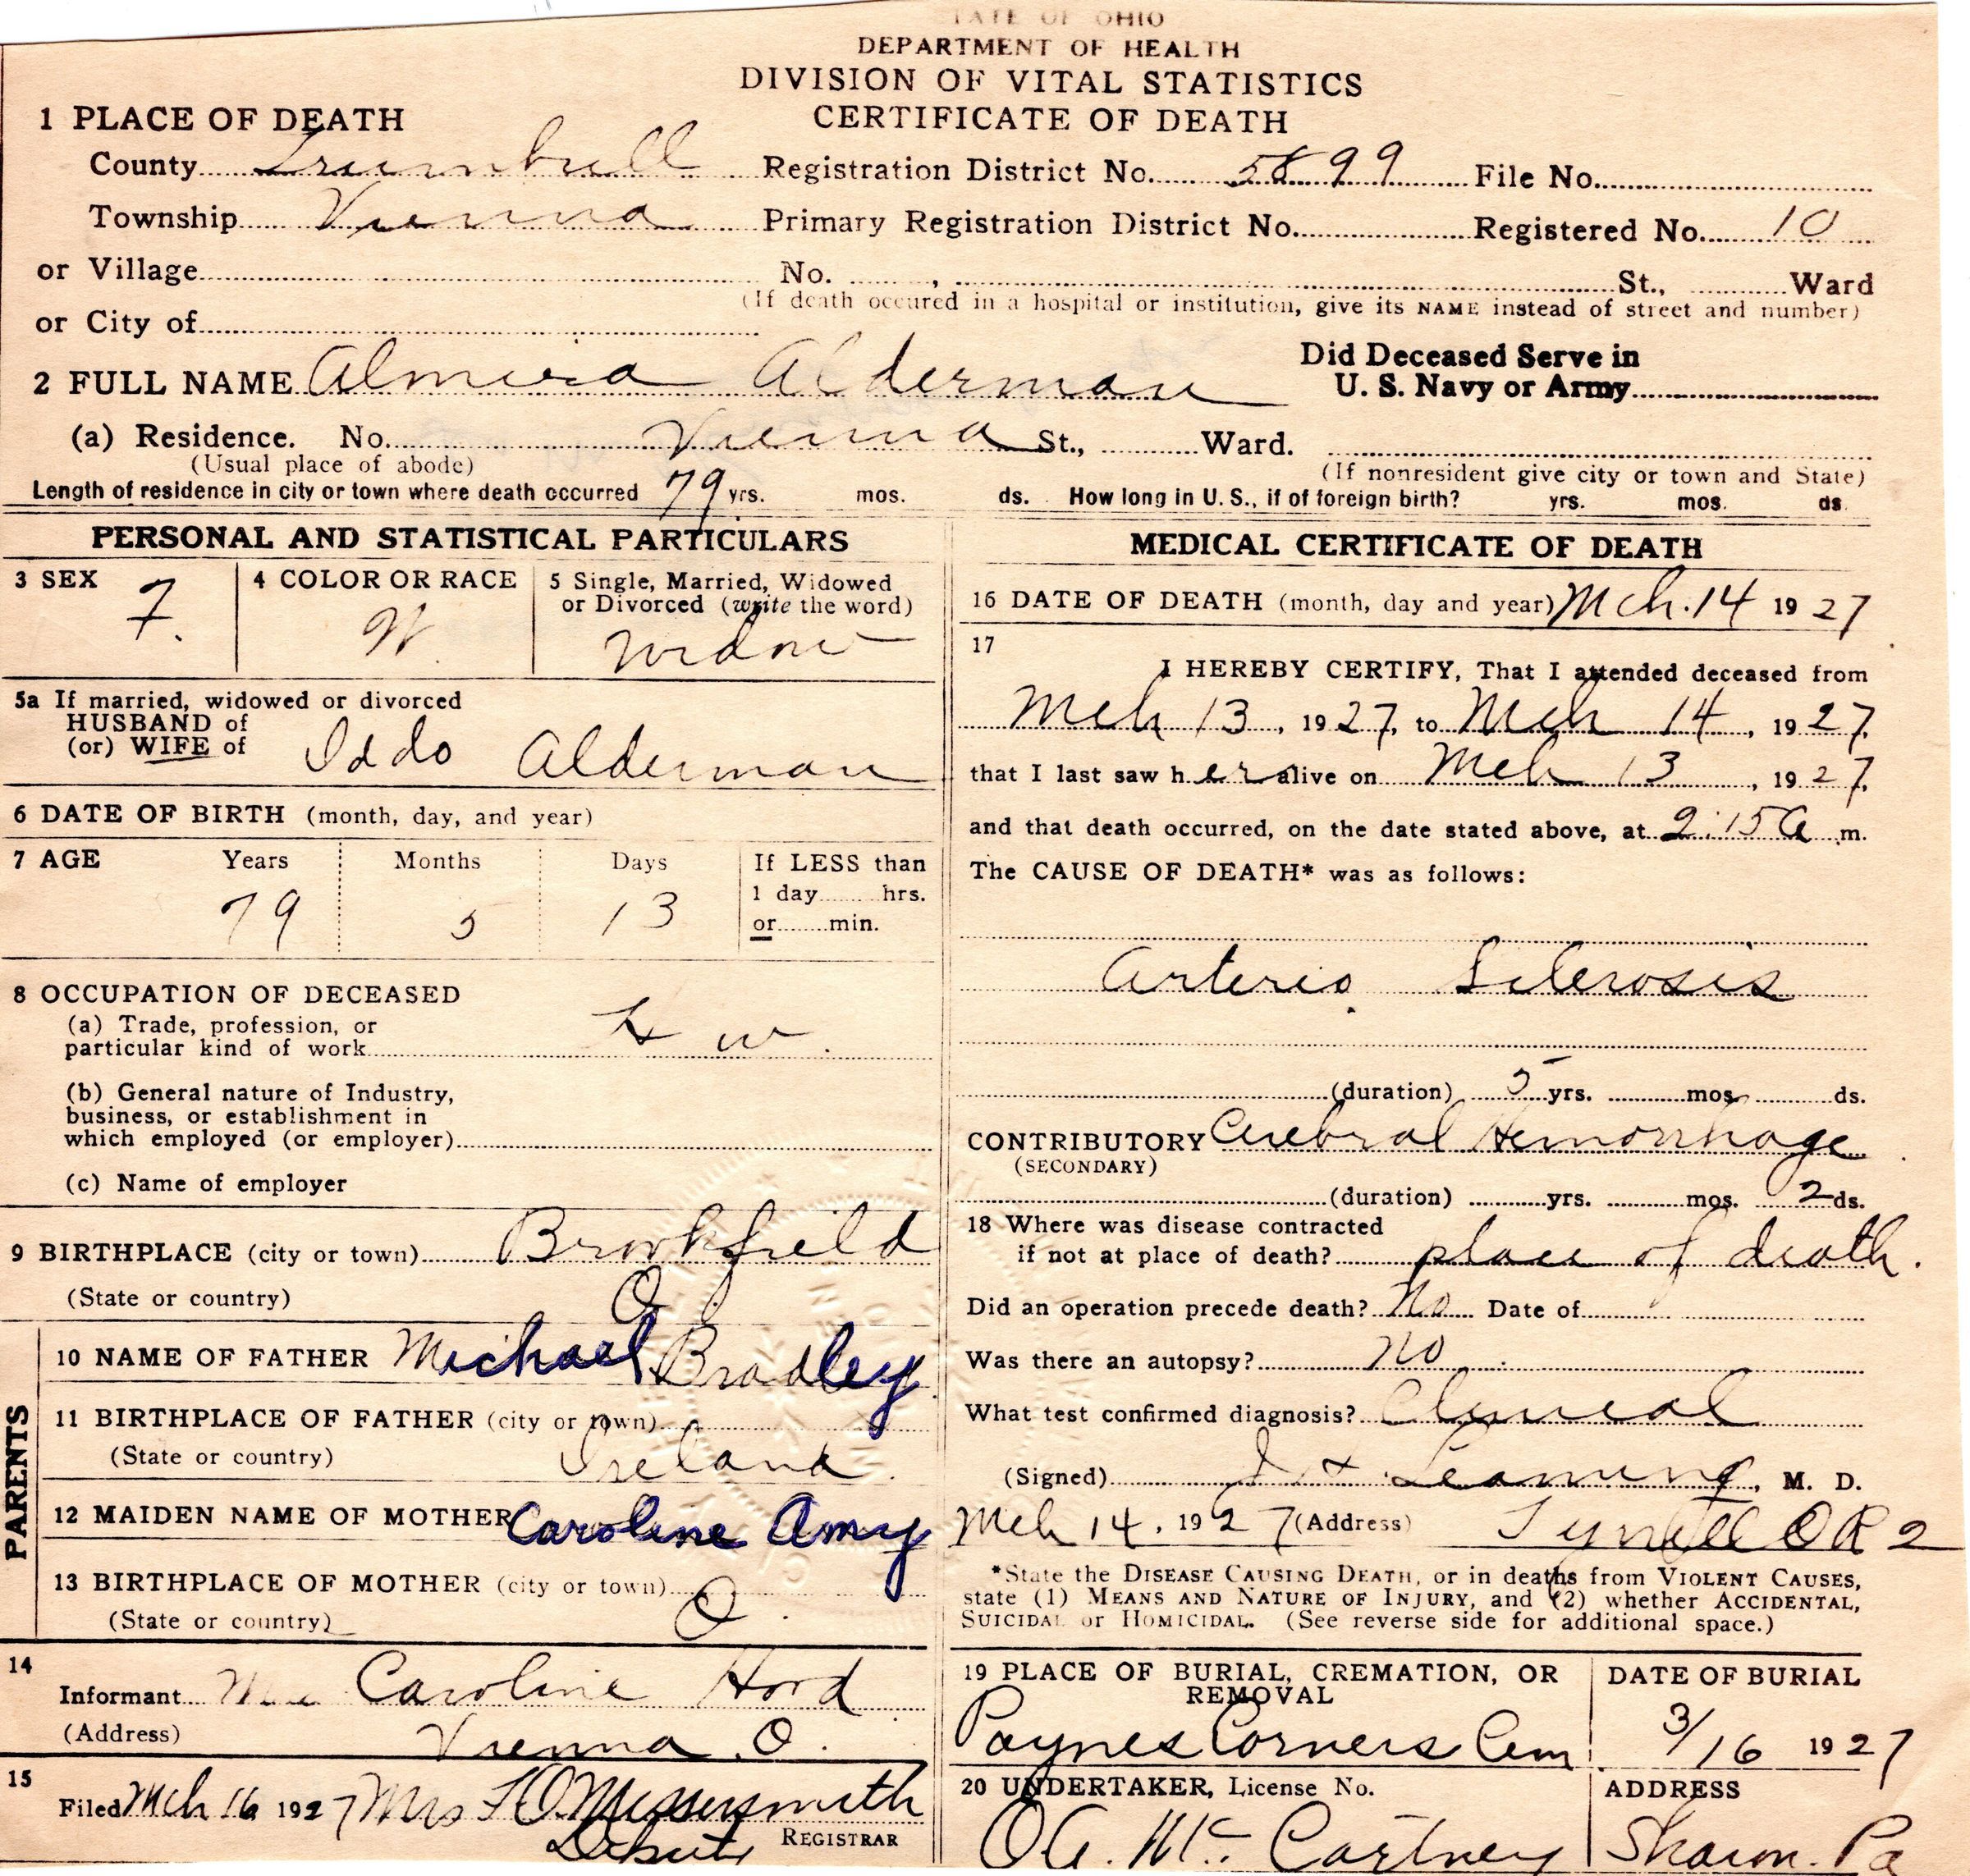 STATE OF OHIO
DEPARTMENT OF HEALTH
DIVISION OF VITAL STATISTICS
CERTIFICATE OF DEATH
1 PLACE OF DEATH
County Trumbull Registration District No. 5899 File No.
Township Vienna Primary Registration District No. Registered No. 10
or Village No. , St., Ward
(If death occured in a hospital or institution, give its NAME instead of street and number)
or City of
2 FULL NAME Almira Alderman
Did Deceased Serve in
U. S. Navy or Army
(a) Residence. No. Vienna St., Ward.
(Usual place of abode) (If nonresident give city or town and State)
Length of residence in city or town where death occurred 79 yrs. mos. ds. How long in U. S., if of foreign birth? yrs. mos. ds.
PERSONAL AND STATISTICAL PARTICULARS
3 SEX F.
4 COLOR OR RACE W.
5 Single, Married, Widowed
or Divorced (write the word)
Widow
5a If married, widowed or divorced
HUSBAND of
(or) WIFE of Iddo Alderman
6 DATE OF BIRTH (month, day, and year)
7 AGE Years Months Days If LESS than
1 day hrs.
79 5 13 or min.
8 OCCUPATION OF DECEASED
(a) Trade, profession, or
particular kind of work H w.
(b) General nature of Industry,
business, or establishment in
which employed (or employer)
(c) Name of employer
9 BIRTHPLACE (city or town) Brookfield
(State or country) O
PARENTS
10 NAME OF FATHER Michael Bradley
11 BIRTHPLACE OF FATHER (city or town)
(State or country) Ireland
12 MAIDEN NAME OF MOTHER Caroline Amy
13 BIRTHPLACE OF MOTHER (city or town) O.
(State or country)
14
Informant Caroline Hood
(Address) Vienna O.
15
Filed Mch 16 1927 Mrs F O Messersmith
Deputy REGISTRAR
MEDICAL CERTIFICATE OF DEATH
16 DATE OF DEATH (month, day and year) Mch. 14 1927
17
I HEREBY CERTIFY, That I attended deceased from
Mch 13, 1927, to Mch 14, 1927,
that I last saw her alive on Mch 13, 1927,
and that death occurred, on the date stated above, at 2:15 a m.
The CAUSE OF DEATH* was as follows:
Arterio Sclerosis
(duration) 5 yrs. mos. ds.
CONTRIBUTORY Cerebral Hemorrhage
(SECONDARY)
(duration) yrs. mos. 2 ds.
18 Where was disease contracted
if not at place of death? place of death.
Did an operation precede death? No Date of
Was there an autopsy? no
What test confirmed diagnosis? Clinical
(Signed) Leaming, M. D.
Mch 14, 1927 (Address) Tyrrell O R 2
*State the DISEASE CAUSING DEATH, or in deaths from VIOLENT CAUSES,
state (1) MEANS AND NATURE OF INJURY, and (2) whether ACCIDENTAL,
SUICIDAL or HOMICIDAL. (See reverse side for additional space.)
19 PLACE OF BURIAL, CREMATION, OR
REMOVAL
Paynes Corners Cem.
DATE OF BURIAL
3/16 1927
20 UNDERTAKER, License No.
O A. Mc Cartney
ADDRESS
Sharon. Pa